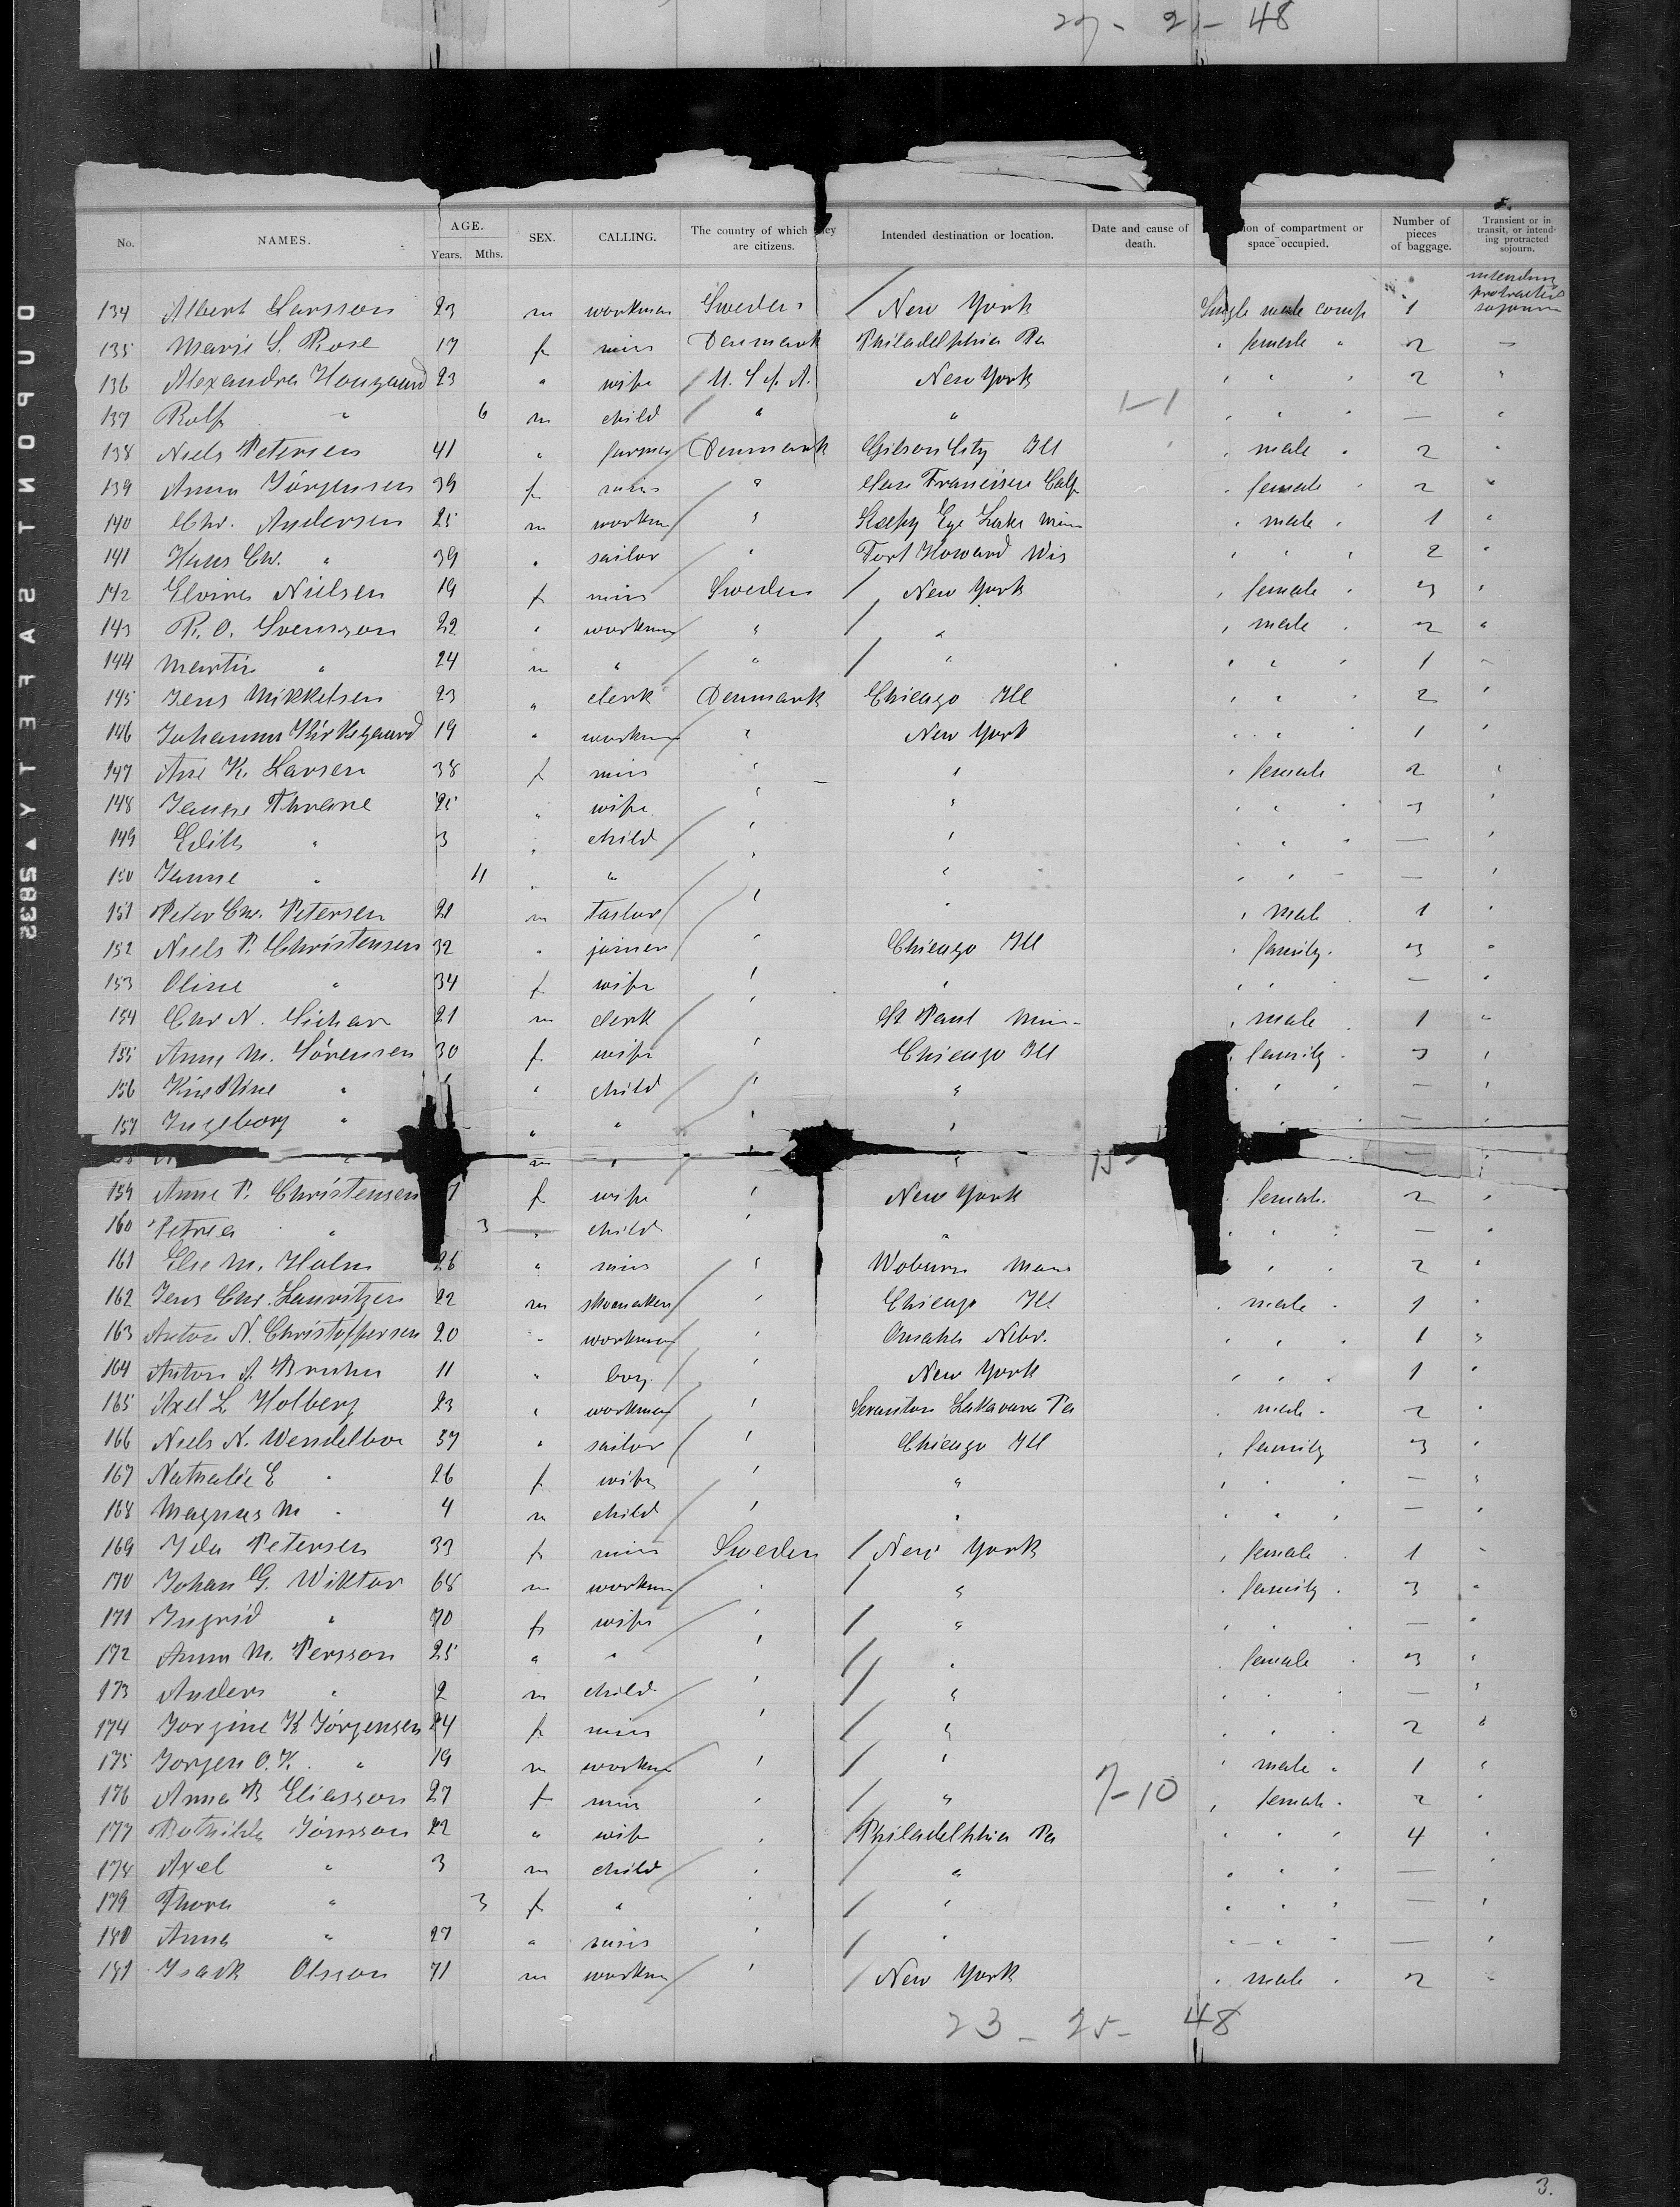 29 - 21 - 48
No. NAMES. AGE. Years. Mths. SEX. CALLING. The country of which they are citizens. Intended destination or location. Date and cause of death. ion of compartment or space occupied. Number of pieces of baggage. Transient or in transit, or intending protracted sojourn.
intending protracted sojourn
134 Albert Larsson 23 m workman Sweden / New York Single male comp 1
135 Marie S. Rose 17 f miss Denmark Philadelphia Pa " female " 2 "
136 Alexandra Hougaard 23 " wife / U. S. of A. New York " " " 2 "
137 Rolf " 6 m child / " " 1-1 " " " — "
138 Niels Petersen 41 " farmer / Denmark Gibson City Ill " male " 2 "
139 Anna Jörgensen 39 f miss " San Francisco Calf " female " 2 "
140 Chr. Andersen 25 m workm / " Sleepy Eye Lake Minn " male " 1 "
141 Hans Chr. " 39 " sailor / " Fort Howard Wis " " " 2 "
142 Elvira Nielsen 19 f miss Sweden / New York " female " 3 "
143 P. O. Svensson 22 " workman / " / " " male " 2 "
144 Martin " 24 m " / " / " " " " 1 "
145 Jens Mikkelsen 23 " clerk Denmark Chicago Ill " " " 2 "
146 Johannes Kirkegaard 19 " workman / " New York " " " 1 "
147 Ane K. Larsen 38 f miss " " " female 2 "
148 Thrane 25 " wife " " " " " 3 "
149 Edith " 3 " child / " " " " " — "
150 " 11 " " / " " " " " — "
151 Peter Chr. Petersen 21 m tailor / " " " male " 1 "
152 Niels P. Christensen 32 " joiner / " Chicago Ill " family " 3 "
153 Oline " 34 f wife " " " " " — "
154 Chr N. 21 m clerk / " St Paul Min " male " 1 "
155 Anne M. Sörensen 30 f wife " Chicago Ill " family " 3 "
156 Kirstine " " child / " " " " " — "
157 Ingeborg " " " " " " " " — "
" m " / " " — "
159 Anne P. Christensen f wife " New York " female " 2 "
160 Petrea " 3 " child " " " " " — "
161 Else M. Holm 26 " miss " Woburn Mass " " 2 "
162 Jens Chr. Lauritzen 22 m shoemaker / " Chicago Ill " male " 1 "
163 Anton N. Christoffersen 20 " workman / " Omaha Nebr. " " " 1 "
164 Anton A. Bruhn 11 " boy / " New York " " " 1 "
165 Axel L Holberg 23 " workman / " Scranton Lakavana Pa " male " 2 "
166 Niels N. Wendelboe 37 " sailor / " Chicago Ill " family 3 "
167 Nathalie E " 26 f wife " " " " " — "
168 Magnus M " 4 m child / " " " " " — "
169 Ida Petersen 33 f miss Sweden / New York " female " 1 "
170 Johan G. Wiktor 68 m workm / " / " " family " 3 "
171 Ingrid " 70 f wife / " / " " " " — "
172 Anna M. Persson 25 " " " / " " female " 3 "
173 Anders " 2 m child / " / " " " " — "
174 Jorgine K Jörgensen 24 f miss " / " " " " 2 "
175 Jorgen O. K. " 19 m workm / " / " " male " 1 "
176 Anna B Eliasson 27 f miss " / " 7-10 " female " 2 "
177 Bothilda Jönsson 22 " wife " / Philadelphia Pa " " " 4 "
178 Axel " 3 m child / " / " " " " — "
179 Thora " 3 f " " / " " " " — "
180 Anna " 27 " miss " / " " " " — "
181 Isack Olsson 71 m workm / " / New York " male " 2 "
23 - 25 - 48
3.
DUPONT SAFETY 5832